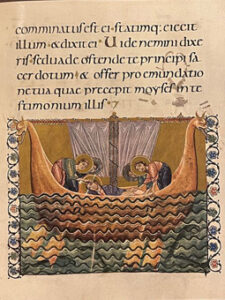 comminatus est ei· statimq; eiecit
illum· & dixit ei· Uide nemini dixe
ris· sed uade ostende te principi sa
cerdotum· & offer pro emundatio
ne tua quę precepit moyses in te
stimonium illis·